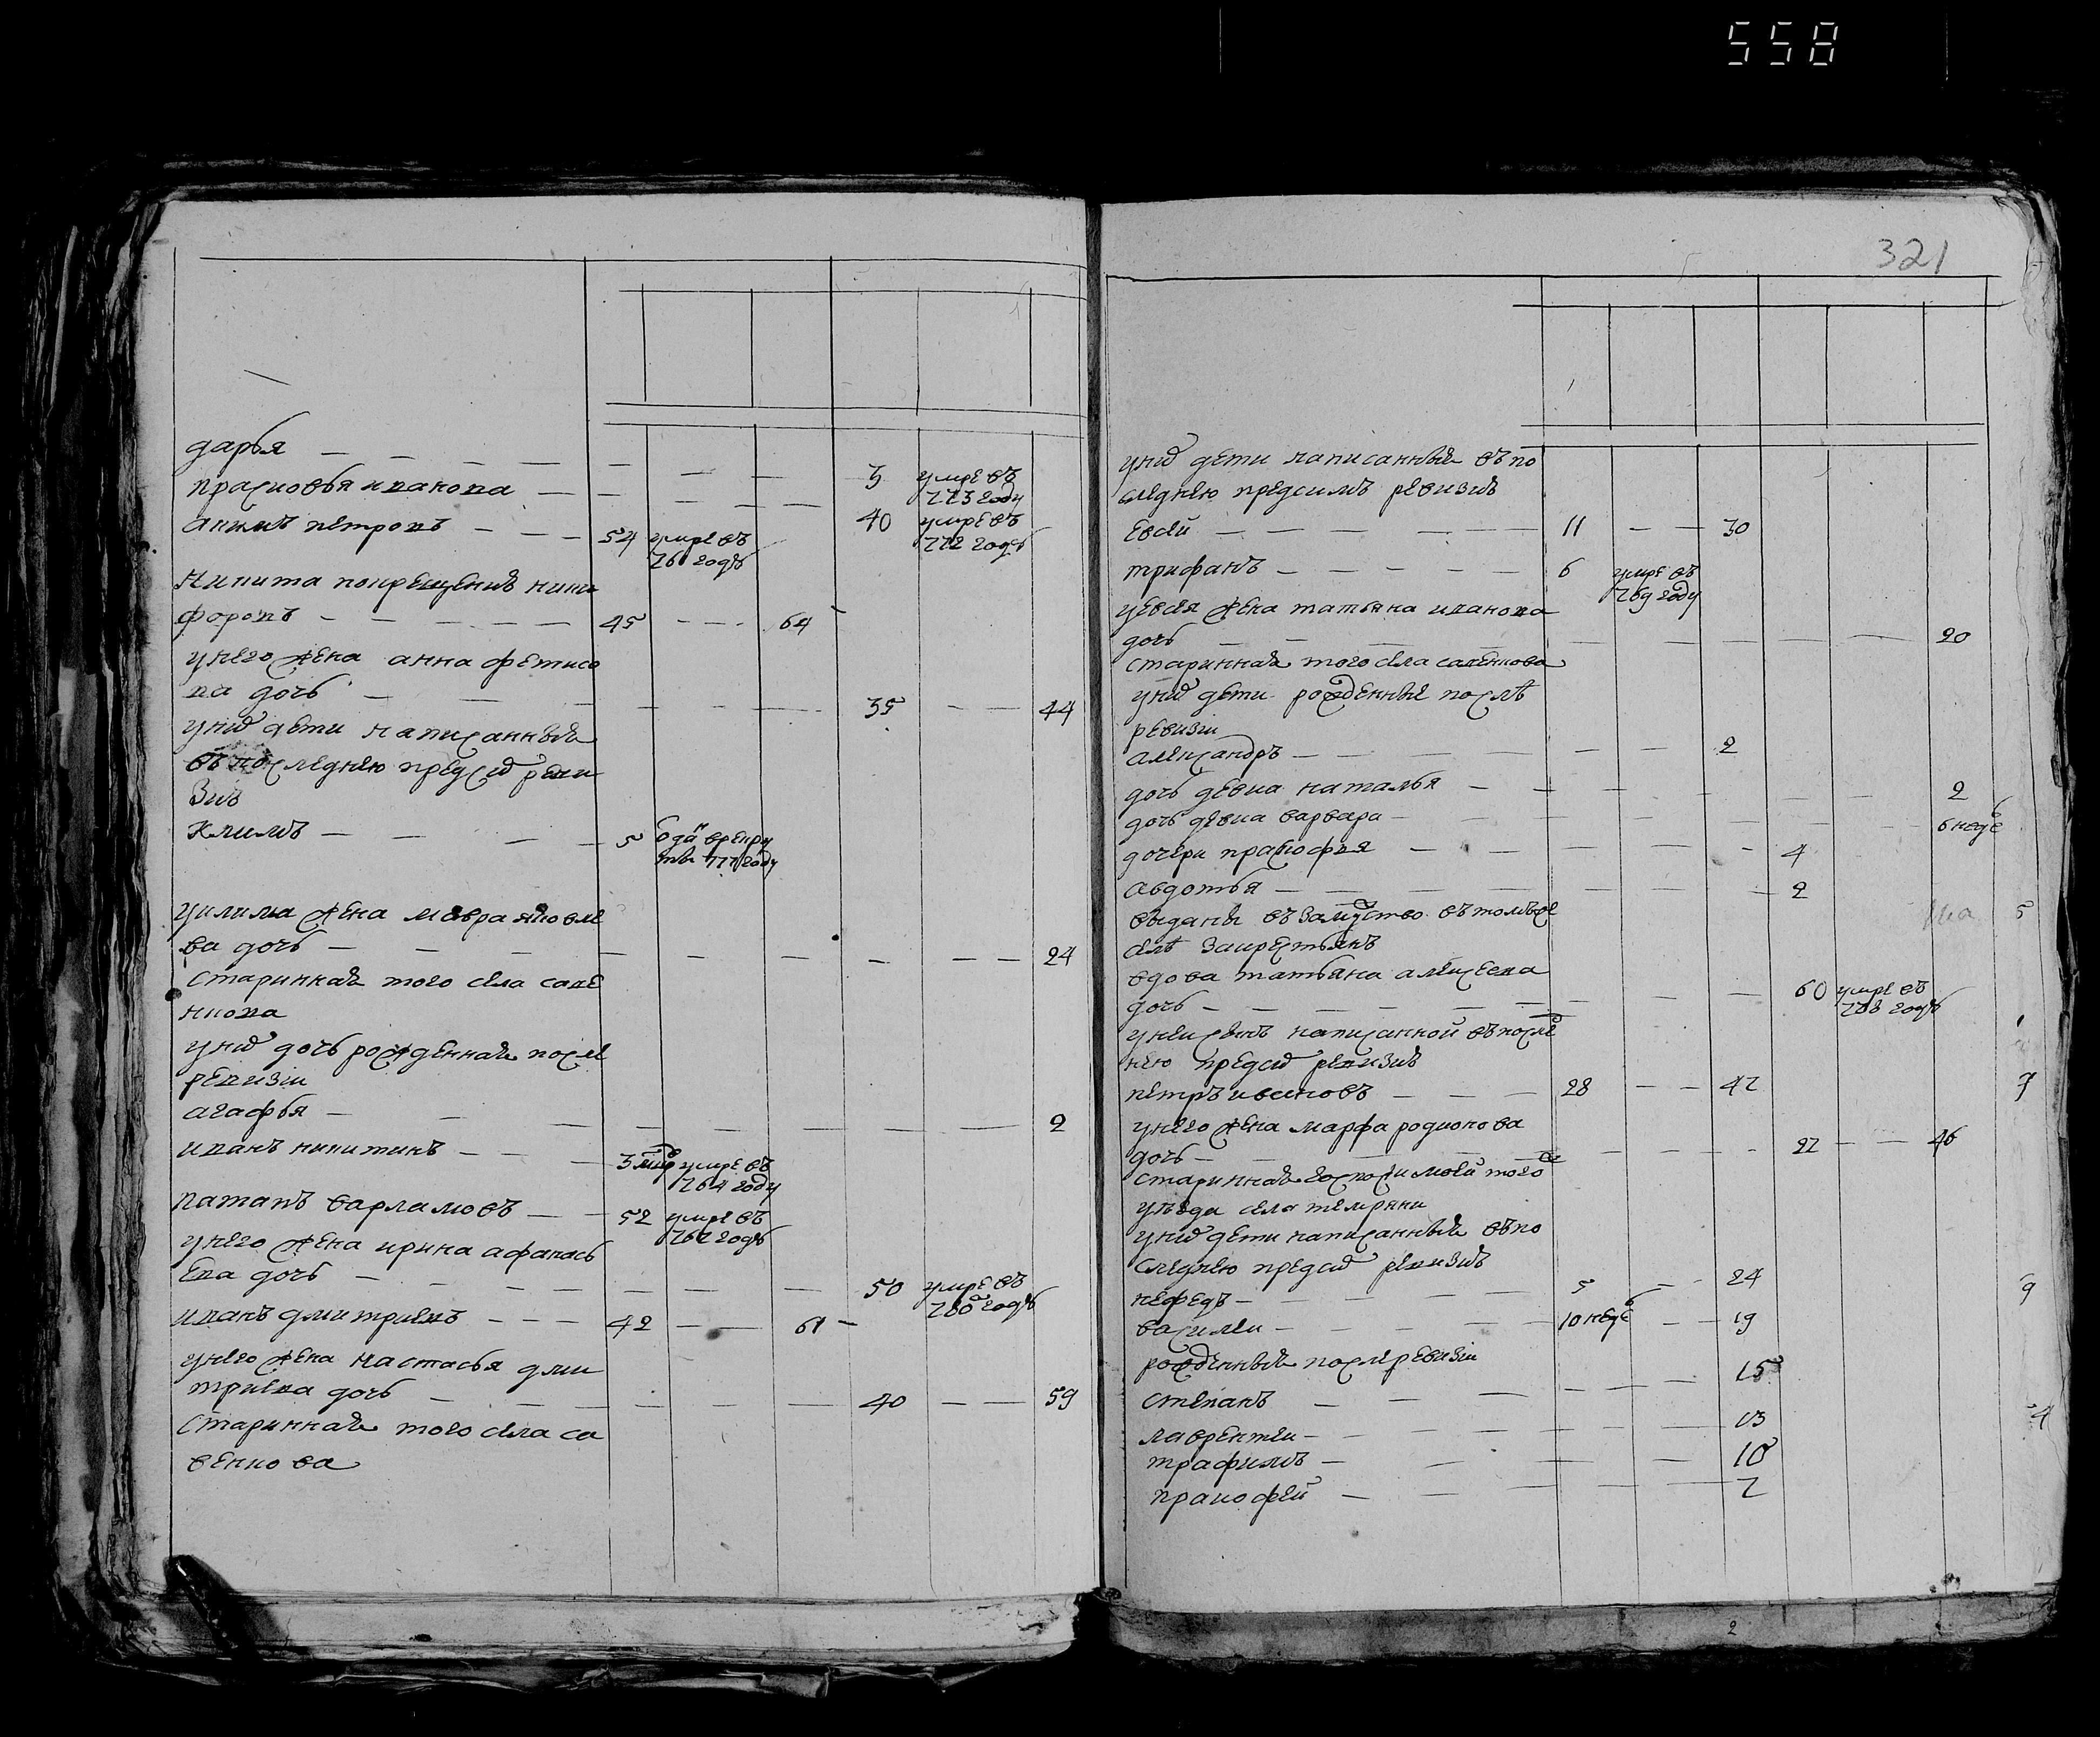 558
321
дарья — — — — — — — 3 умре въ
773 году
прасковья иванова — — — — — 40 умре въ
772 годѣ
акимъ петровъ — — — 54 умре въ
761 годѣ
Никита покрещениѣ ники
форовъ — — — — — 45 — — 64
у него жена анна фетисо
ва дочь — — — — — — 35 — — 44
у них дети написанныя
въ последнею пред сей реви
зиѣ
Климъ — — — 5 отдан в рекру
ты 777 году
у клима жена мавра яковле
ва дочь — — — — — — — — — 24
старинная того села саве
нкова
у них дочь рожденная после
ревизiи
агафья — — — — — — — — 2
иванъ никитинъ — — — умре въ
764 году
патапъ варламовъ — — 52 умре въ
767 годѣ
у него жена ирина афанась
ева дочь — — — — — — 50 умре въ
780 годѣ
иванъ дмитриевъ — — — 42 — — 61
у него жена настасья дми
триева дочь — — — — — — 40 — — 59
старинная того села са
венкова
у них дети написанныя въ по
следнею пред симъ ревизиѣ
евсей — — — — — 11 — — 30
трифанъ — — — — — 6 умре въ
769 году
у евсея жена татьяна иванова
дочь — — — — — — — — 20
старинная того села савенкова
у них дети рожденные послѣ
ревизiи
александръ — — — — — — 2
дочь девка наталья — — — — — — 2
дочь девка варвара — — — — — — 6 недѣ
дочери пракофья — — — — — — 4
авдотья — — — — — — 2
выданы въ замужство въ томъ же
селѣ за крестьянъ
вдова татьяна алексеева
дочь — — — — — — — 60 умре въ
768 годѣ
у неи сынъ написанной въ после
нею пред сей ревизиѣ
петръ ивановъ — — — 28 — — 47
у него жена марфа родионова
дочь — — — — — — — 27 — — 46
старинная госпожи моей того ж
уѣзда села темряни
у них дети написанныя въ по
следнею пред сей ревизиѣ
нефедъ — — — — — 5 — — 24
василеи — — — — — 10 недѣ — — 19
рожденныя после ревизiи
степанъ — — — — — 15
лаврентеи — — — — — 13
трафимъ — — — — — 10
пракофей — — — — — 7